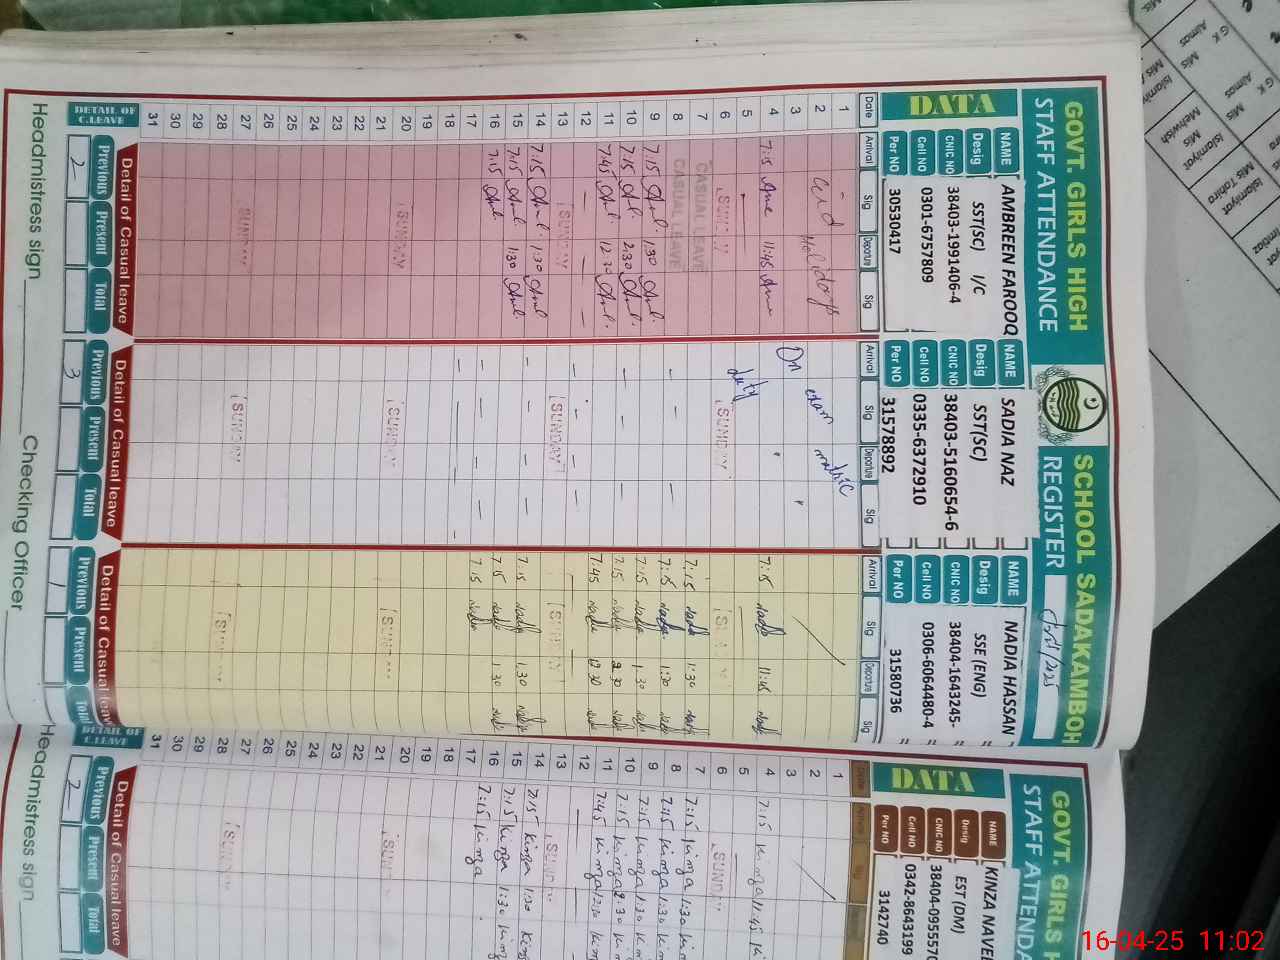 GOVT. GIRLS HIGH SCHOOL SADAKAMBOH
STAFF ATTENDANCE REGISTER April/2025
DATA
NAME AMBREEN FAROOQ
Desig SST(SC) I/C
CNIC NO 38403-1991406-4
Cell NO 0301-6757809
Per NO 30530417
NAME SADIA NAZ
Desig SST(SC)
CNIC NO 38403-5160654-6
Cell NO 0335-6372910
Per NO 31578892
NAME NADIA HASSAN
Desig SSE (ENG)
CNIC NO 38404-1643245-
Cell NO 0306-6064480-4
Per NO 31580736
Date Arrival Sig Departure Sig Arrival Sig Departure Sig Arrival Sig Departure Sig
1 On exam matric
2 Eid Holidays duty
3
4 7:15 11:45 7:15 Nadia 11:45 Nadia
5
6 SUNDAY SUNDAY SUN
7 CASUAL LEAVE 7:15 Nadia 1:30 Nadia
8 CASUAL LEAVE - - - - 7:15 Nadia 1:30 Nadia
9 7:15 1:30 7:15 Nadia 1:30 Nadia
10 7:15 2:30 - - - - 7:15 Nadia 2:30 Nadia
11 7:45 12:30 7:45 Nadia 12:30 Nadia
12 - - - - - -
13 SUNDAY SUNDAY SUNDAY
14 7:15 1:30 - - - - 7:15 Nadia 1:30 Nadia
15 7:15 1:30 7:15 Nadia 1:30 Nadia
16 7:15 - - - - 7:15 Nadia
17
18
19
20 SUNDAY SUNDAY SUN
21
22
23
24
25
26
27 SUNDAY SUNDAY SUN
28
29
30
31
DETAIL OF C.LEAVE
Detail of Casual leave Detail of Casual leave Detail of Casual leave
Previous Present Total Previous Present Total Previous Present Total
2 3 1
Headmistress sign Checking Officer
GOVT. GIRLS H
STAFF ATTENDA
DATA
NAME KINZA NAVEE
Desig EST (DM)
CNIC NO 38404-0955570
Cell NO 0342-8643199
Per NO 3142740
1
2
3
4 7:15 Kinza 11:45 Ki
5
6 SUNDAY
7 7:15 Kinza 1:30 Kin
8 7:15 Kinza 1:30 Kin
9 7:15 Kinza 1:30 Kin
10 7:15 Kinza 2:30 Kin
11 7:45 Kinza 12:30 Kin
12
13 SUNDAY
14 7:15 Kinza 1:30 Kinz
15 7:15 Kinza 1:30 Kinz
16 7:15 Kinza
17
18
19
20 SUNDAY
21
22
23
24
25
26
27 SUNDAY
28
29
30
31
DETAIL OF C.LEAVE
Detail of Casual leave
Previous Present Total
2
Headmistress sign
G K
Almas
Mis
Islamiy
Mis
Mehwish
Islamiyat
Mis Tahira
Islamiyat
16-04-25 11:02